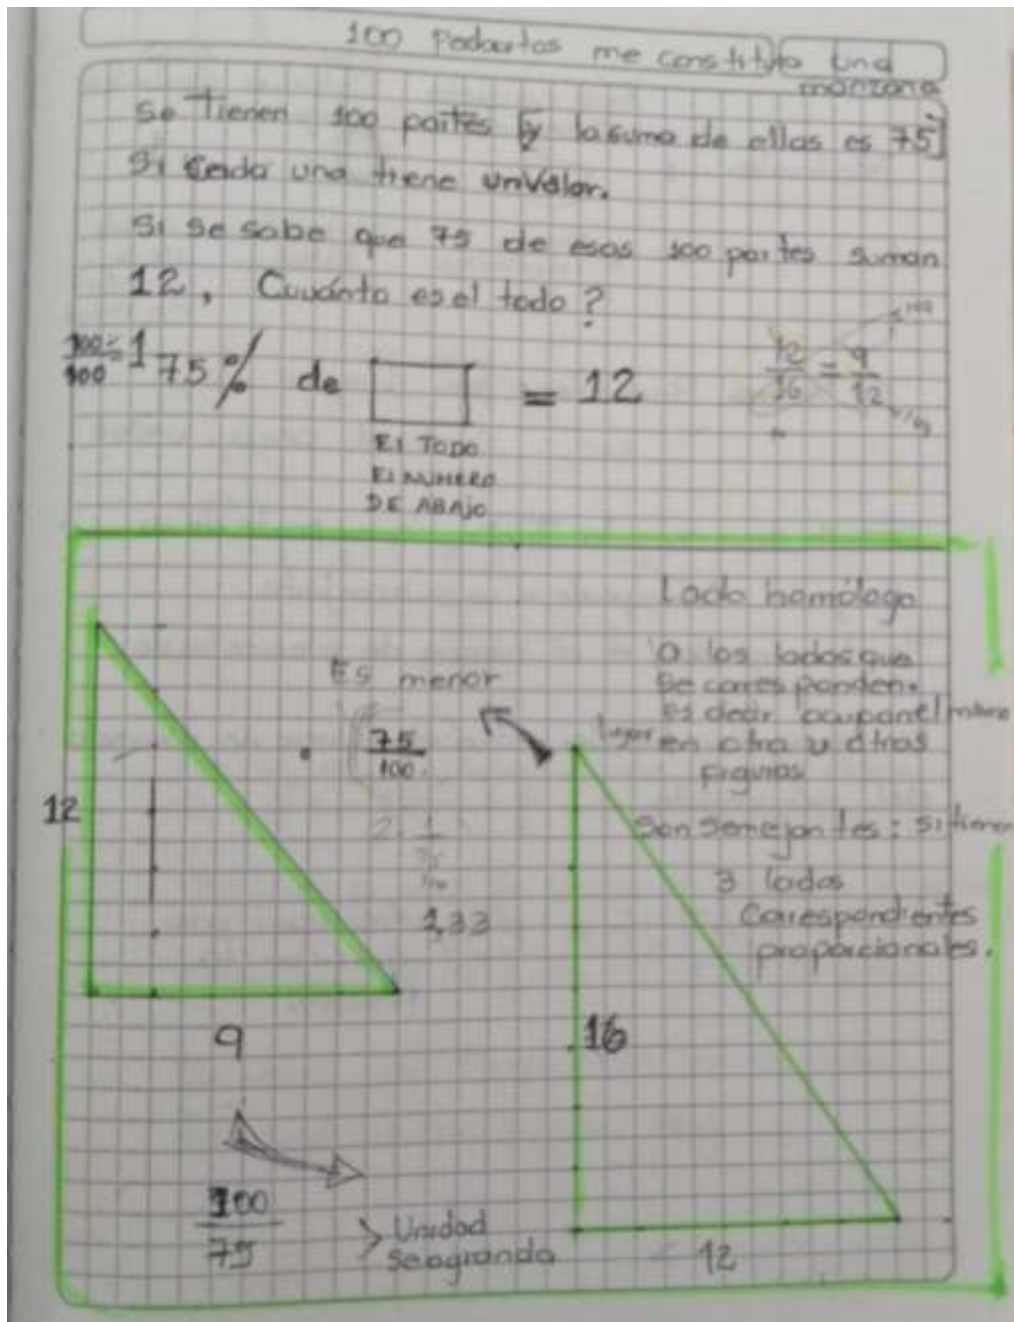 100 Pedacitos me constituyo una
manzana
Se Tienen 100 partes y la suma de ellas es 75
Si Cada una tiene un Valor.
Si se sabe que 75 de esas 100 partes suman
12, Cuuánto es el todo?
100/100 = 1
75% de = 12
El TODO
El NUMERO
DE ABAJO
12/16 = 9/12
Lado homólogo
A los lados que
se corresponden.
es decir ocupan el mismo
lugar en otra u otras
Figuras
Es menor
75/100
Son semejantes: si tienen
3 lados
Correspondientes
proporcionales.
1,33
12
9
16
12
100/75
> Unidad
Se agranda